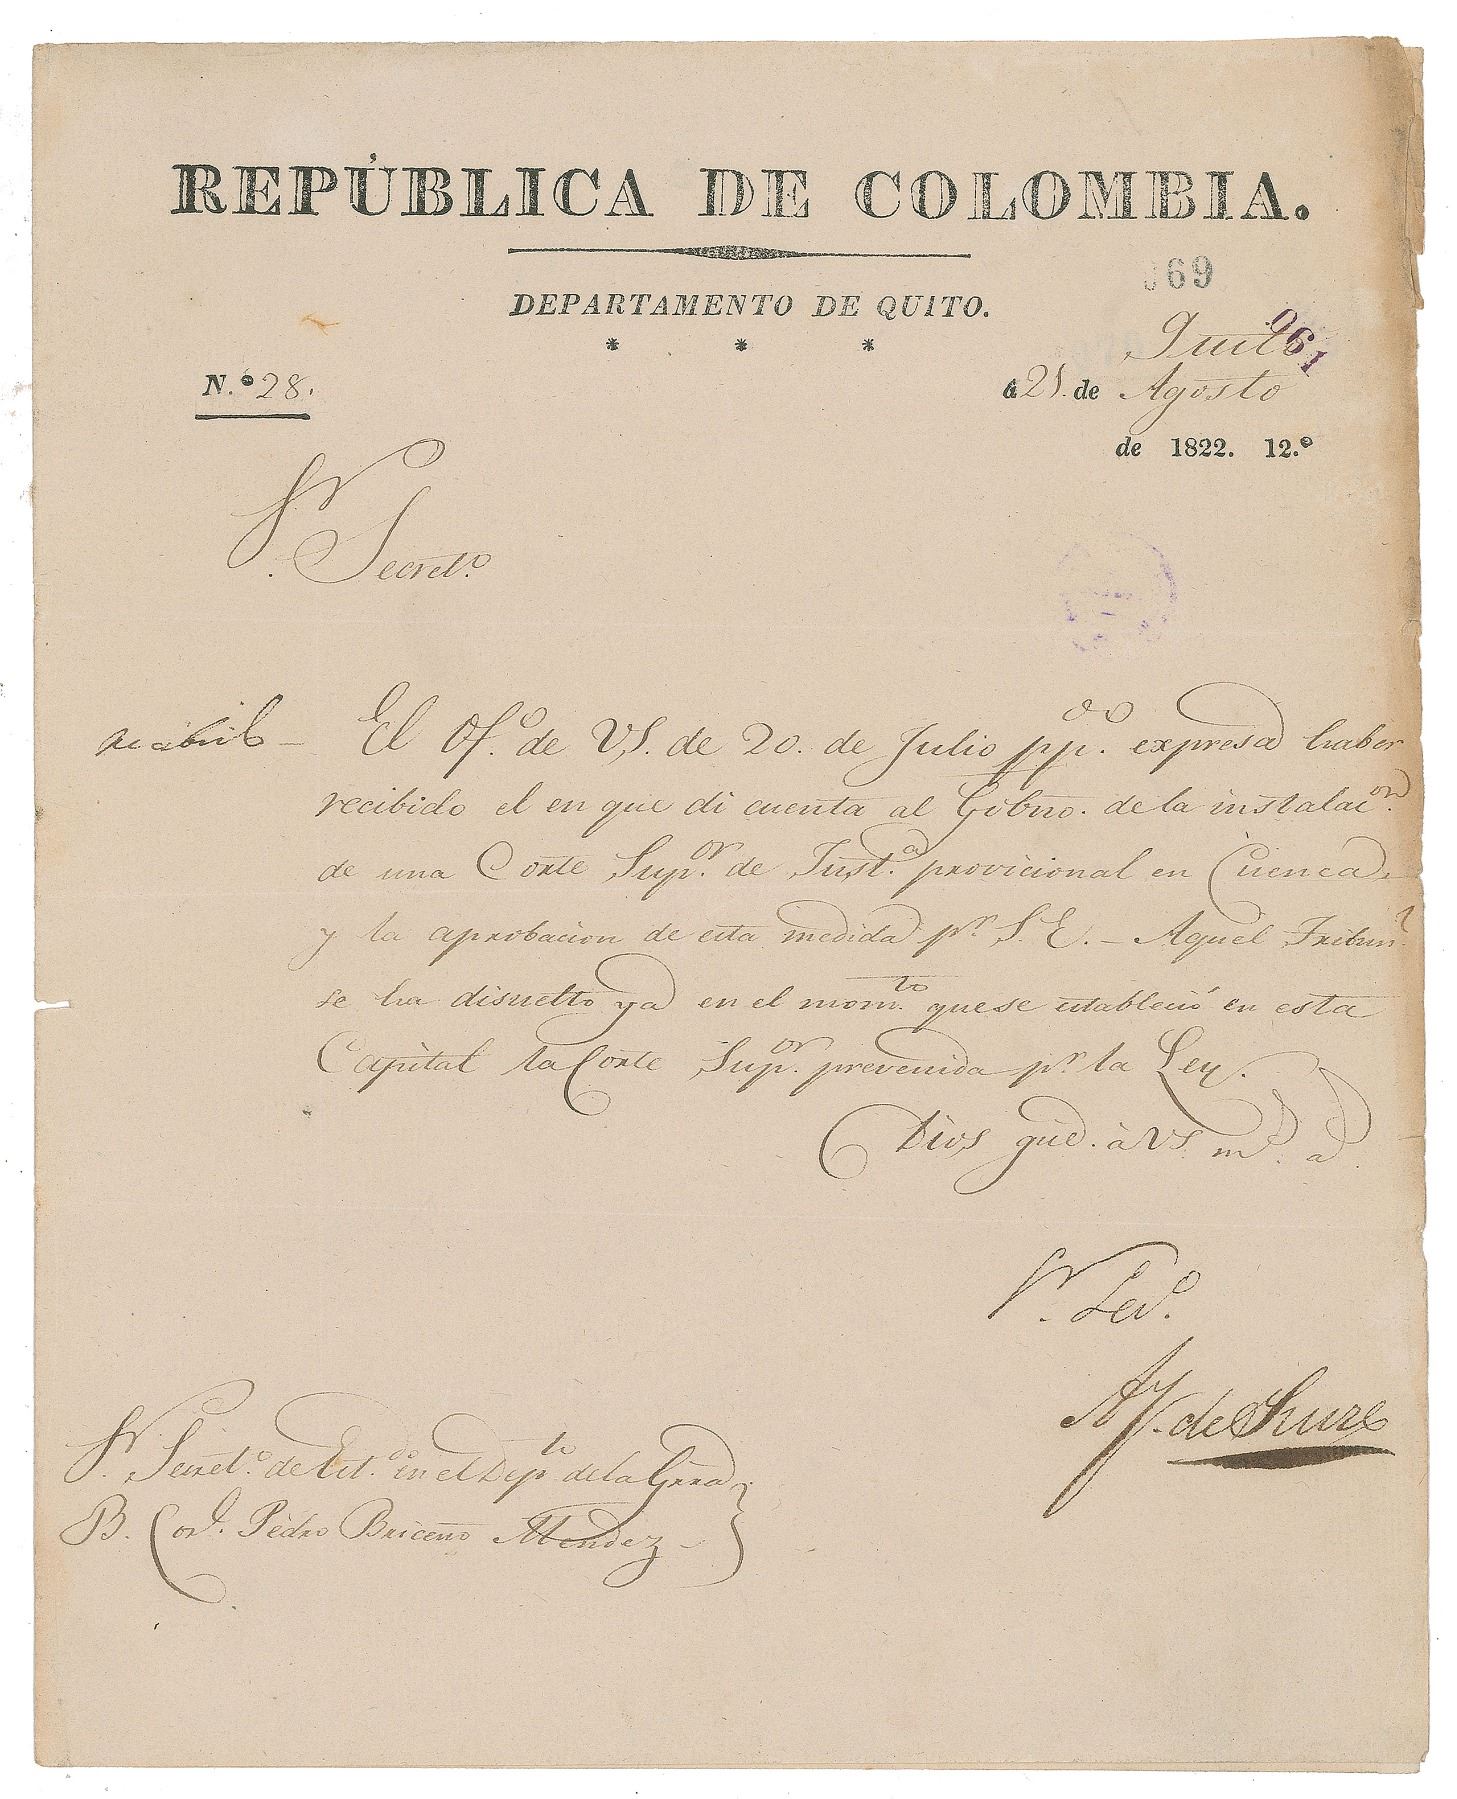 REPÚBLICA DE COLOMBIA.
069
DEPARTAMENTO DE QUITO.
* * *
190
Quito
N.º 28.
a 21. de Agosto
de 1822. 12.º
Sr.
Secret.º
recibido - El Of.º de VS. de 20. de Julio pp.do expresa haber
recibido el en que di cuenta al Gobno. de la instalac.on
de una Corte Sup.or de Just.a provicional en Cuenca,
y la aprobacion de esta medida pr. S. E. - Aquel Tribun.l
se ha disuelto ya en el mom.to que se estableció en esta
Capital la Corte Sup.or prevenida pr. la Ley.
Dios gue. à VS. m.s a.s
Sr. Sec.º
A J. de Sucre
Sr. Secret.º de Est.do en el Dep.to de la Grra
B. Cor.l Pedro Briceño Mendez -